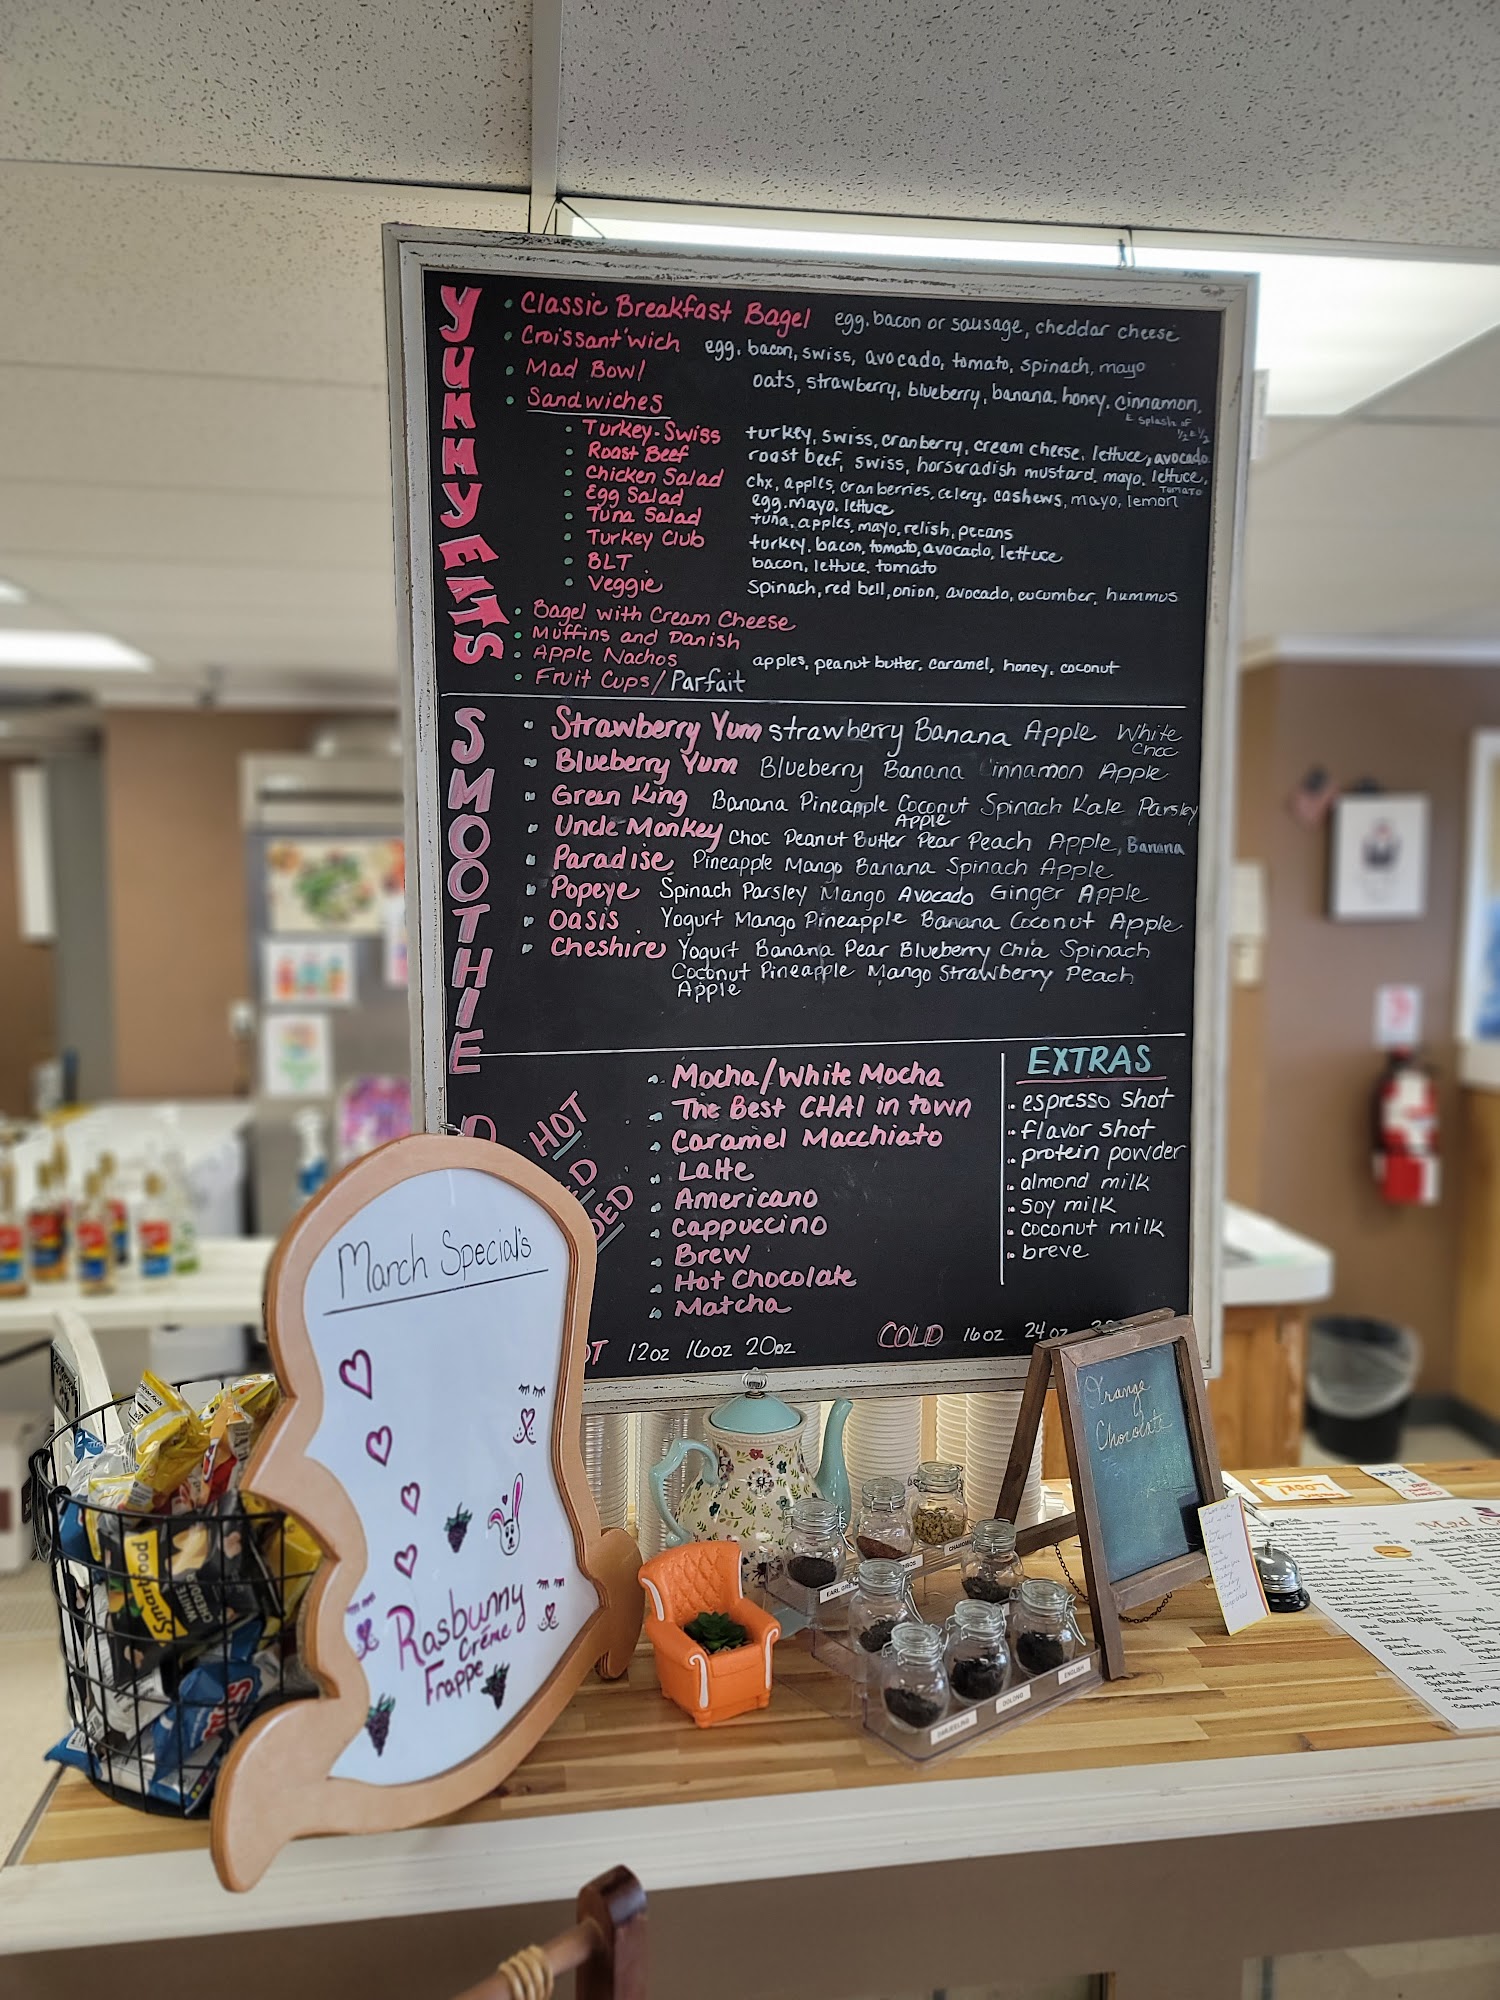 YUMMY EATS
Classic Breakfast Bagel egg, bacon or sausage, cheddar cheese
Croissant'wich egg, bacon, swiss, avocado, tomato, spinach, mayo
Mad Bowl oats, strawberry, blueberry, banana, honey, cinnamon,
& splash of
1/2 & 1/2
Sandwiches
Turkey-Swiss turkey, swiss, cranberry, cream cheese, lettuce, avocado
Roast Beef roast beef, swiss, horseradish mustard, mayo, lettuce,
TOMATO
Chicken Salad chx, apples, cranberries, celery, cashews, mayo, lemon
Egg Salad egg, mayo, lettuce
Tuna Salad tuna, apples, mayo, relish, pecans
Turkey Club turkey, bacon, tomato, avocado, lettuce
BLT bacon, lettuce, tomato
Veggie Spinach, red bell, onion, avocado, cucumber, hummus
Bagel with Cream Cheese
Muffins and Danish
Apple Nachos apples, peanut butter, caramel, honey, coconut
Fruit Cups/Parfait
SMOOTHIE
Strawberry Yum strawberry Banana Apple White
Choc
Blueberry Yum Blueberry Banana innamon Apple
Green King Banana Pineapple Coconut Spinach Kale Parsley
Apple
Uncle Monkey Choc Peanut Butter Pear Peach Apple, Banana
Paradise Pineapple Mango Banana Spinach Apple
Popeye Spinach Parsley Mango Avocado Ginger Apple
Oasis Yogurt Mango Pineapple Banana Coconut Apple
Cheshire Yogurt Banana Pear Blueberry Chia Spinach
Coconut Pineapple Mango Strawberry Peach
Apple
HOT
Mocha/White Mocha
The Best CHAI in town
Caramel Macchiato
Latte
Americano
Cappuccino
Brew
Hot Chocolate
Matcha
EXTRAS
espresso shot
flavor shot
protein powder
almond milk
soy milk
coconut milk
breve
12oz 16oz 20oz
COLD 16oz 24oz
March Special's
Rasbunny
Créme
Frappe
Orange
Chocolate
Smartfood
WHITE
CHEDDAR
EARL GREY
DARJEELING
OOLONG
ENGLISH
Mad